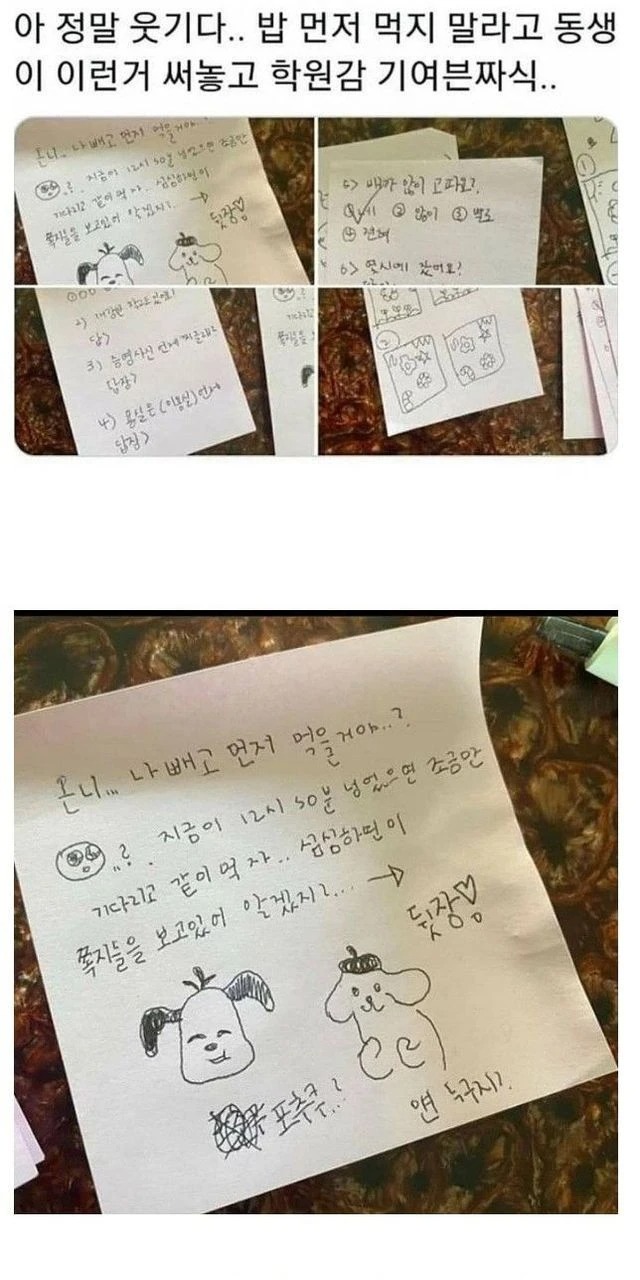 아 정말 웃기다.. 밥 먼저 먹지 말라고 동생
이 이런거 써놓고 학원감 기여븐짜식..
온니... 나 빼고 먼저 먹을거야..?
..?. 지금이 12시 50분 넘었으면 조금만
기다리고 같이 먹자.. 심심하면 이
쪽지들을 보고있어 알겠지?... →
뒷장♡
5> 배가 많이 고파요?
① 네 ② 많이 ③ 별로
④ 전혀
6> 몇시에 잤어요?
2)
답>
3) 증명사진 언제
답장>
4) 용실은 (미용실) 언제
답장>
②
온니... 나 빼고 먼저 먹을거야..?
..?. 지금이 12시 50분 넘었으면 조금만
기다리고 같이 먹자.. 심심하면 이
쪽지들을 보고있어 알겠지?... →
뒷장♡
포챠쿠..?
앤 누구지?.